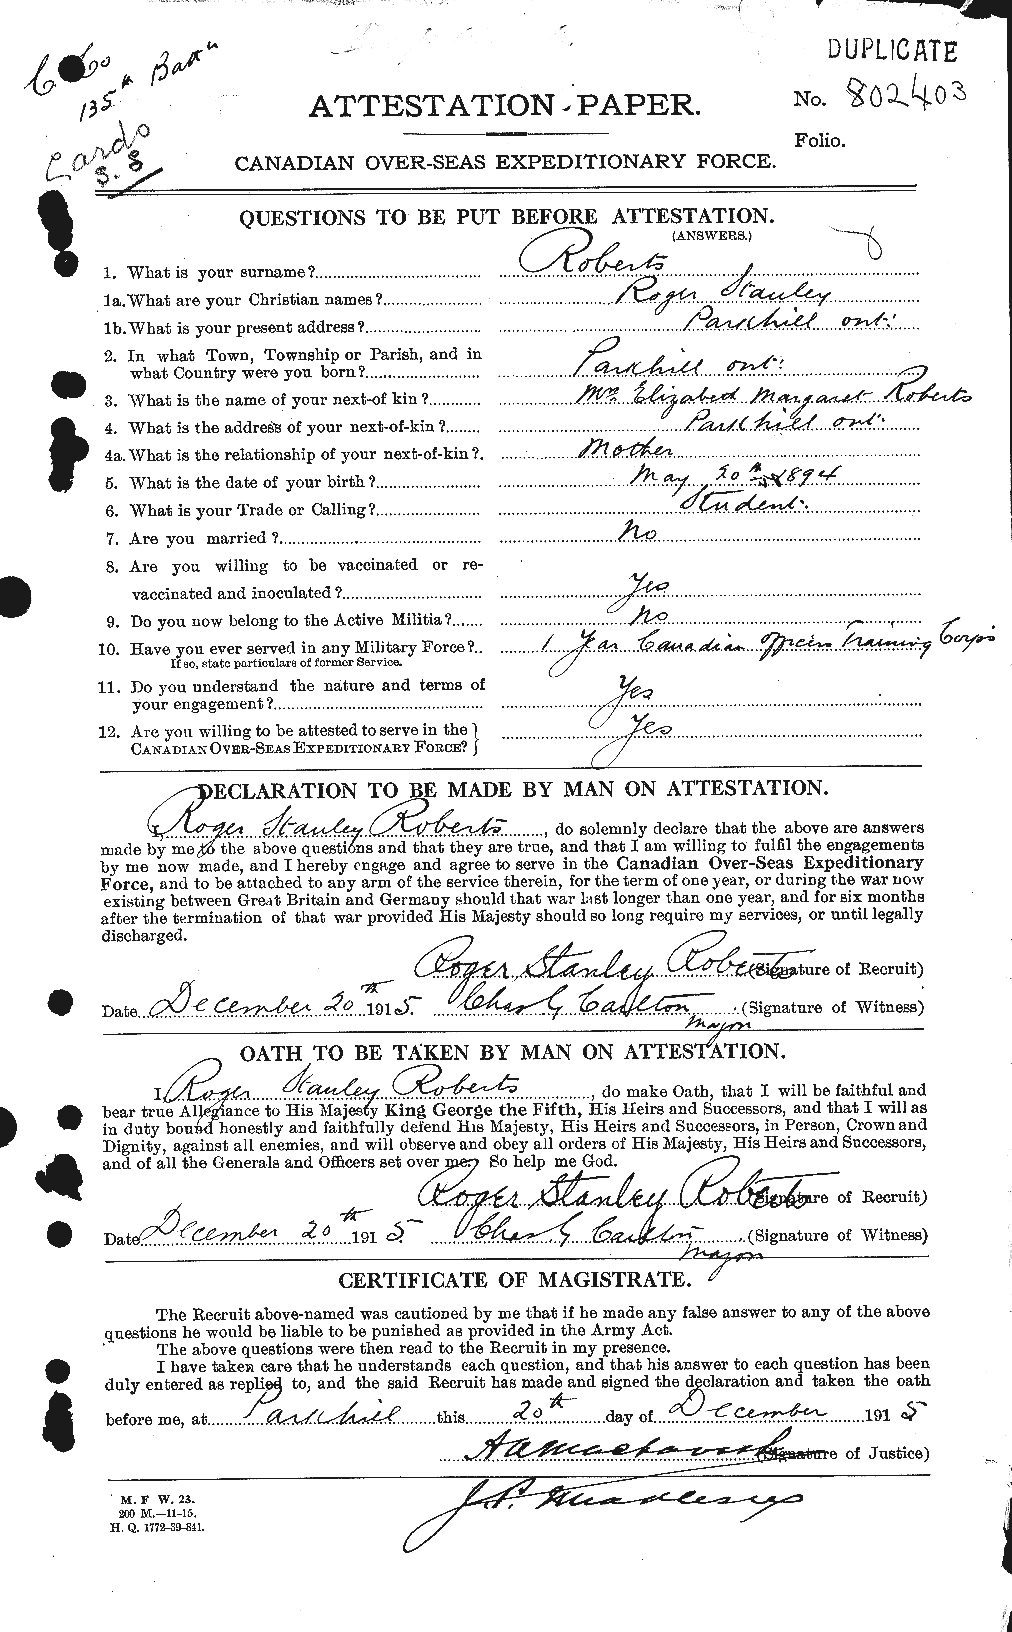 DUPLICATE
135th Battn
No. 802403
ATTESTATION PAPER.
Folio.
Cards
S. S
CANADIAN OVER-SEAS EXPEDITIONARY FORCE.
QUESTIONS TO BE PUT BEFORE ATTESTATION.
(ANSWERS.)
1. What is your surname? Roberts
1a. What are your Christian names? Roger Stanley
1b. What is your present address? Parkhill ont:
2. In what Town, Township or Parish, and in
what Country were you born? Parkhill ont:
3. What is the name of your next-of kin? Mrs Elizabed Margaret Roberts
4. What is the address of your next-of-kin? Parkhill ont:
4a. What is the relationship of your next-of-kin? Mother
5. What is the date of your birth? May 20th 1894
6. What is your Trade or Calling? Student.
7. Are you married? No
8. Are you willing to be vaccinated or re-
vaccinated and inoculated? Yes
9. Do you now belong to the Active Militia? No
10. Have you ever served in any Military Force? 1 Year Canadian Officers Training Corps
If so, state particulars of former Service.
11. Do you understand the nature and terms of
your engagement? Yes
12. Are you willing to be attested to serve in the
CANADIAN OVER-SEAS EXPEDITIONARY FORCE? Yes
DECLARATION TO BE MADE BY MAN ON ATTESTATION.
I, Roger Stanley Roberts, do solemnly declare that the above are answers
made by me to the above questions and that they are true, and that I am willing to fulfil the engagements
by me now made, and I hereby engage and agree to serve in the Canadian Over-Seas Expeditionary
Force, and to be attached to any arm of the service therein, for the term of one year, or during the war now
existing between Great Britain and Germany should that war last longer than one year, and for six months
after the termination of that war provided His Majesty should so long require my services, or until legally
discharged.
Roger Stanley Roberts (Signature of Recruit)
Date December 20th 1915. Chas G Carlton (Signature of Witness)
Major
OATH TO BE TAKEN BY MAN ON ATTESTATION.
I, Roger Stanley Roberts, do make Oath, that I will be faithful and
bear true Allegiance to His Majesty King George the Fifth, His Heirs and Successors, and that I will as
in duty bound honestly and faithfully defend His Majesty, His Heirs and Successors, in Person, Crown and
Dignity, against all enemies, and will observe and obey all orders of His Majesty, His Heirs and Successors,
and of all the Generals and Officers set over me. So help me God.
Roger Stanley Roberts (Signature of Recruit)
Date December 20th 1915. Chas G Carlton (Signature of Witness)
Major
CERTIFICATE OF MAGISTRATE.
The Recruit above-named was cautioned by me that if he made any false answer to any of the above
questions he would be liable to be punished as provided in the Army Act.
The above questions were then read to the Recruit in my presence.
I have taken care that he understands each question, and that his answer to each question has been
duly entered as replied to, and the said Recruit has made and signed the declaration and taken the oath
before me, at Parkhill this 20th day of December 1915
(Signature of Justice)
J.P. Middlesex
M. F. W. 23.
200 M.—11-15.
H. Q. 1772-39-841.